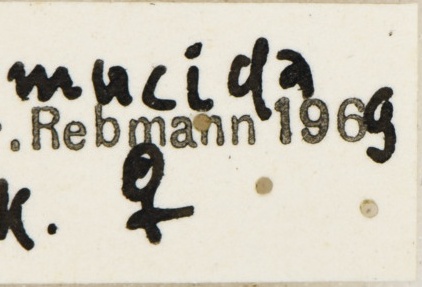 mucida
. Rebmann 1969
K. ♀